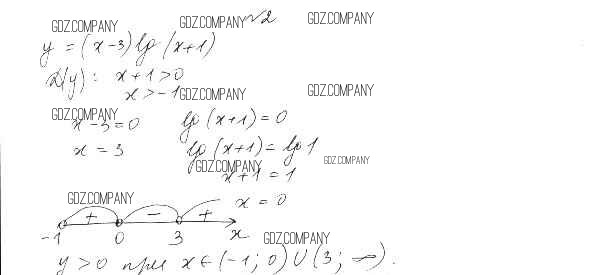 GDZ.COMPANY №2 GDZ.COMPANY GDZ.COMPANY
y = (x-3) lg (x+1)
D(y): x+1>0
x>-1 GDZ.COMPANY GDZ.COMPANY
GDZ.COMPANY
x-3=0 lg (x+1)=0
x=3 lg (x+1)= lg 1
GDZ.COMPANY GDZ.COMPANY
x+1=1
GDZ.COMPANY x=0
+ - +
-1 0 3 x GDZ.COMPANY
y>0 при x∈(-1; 0)∪(3; ∞).